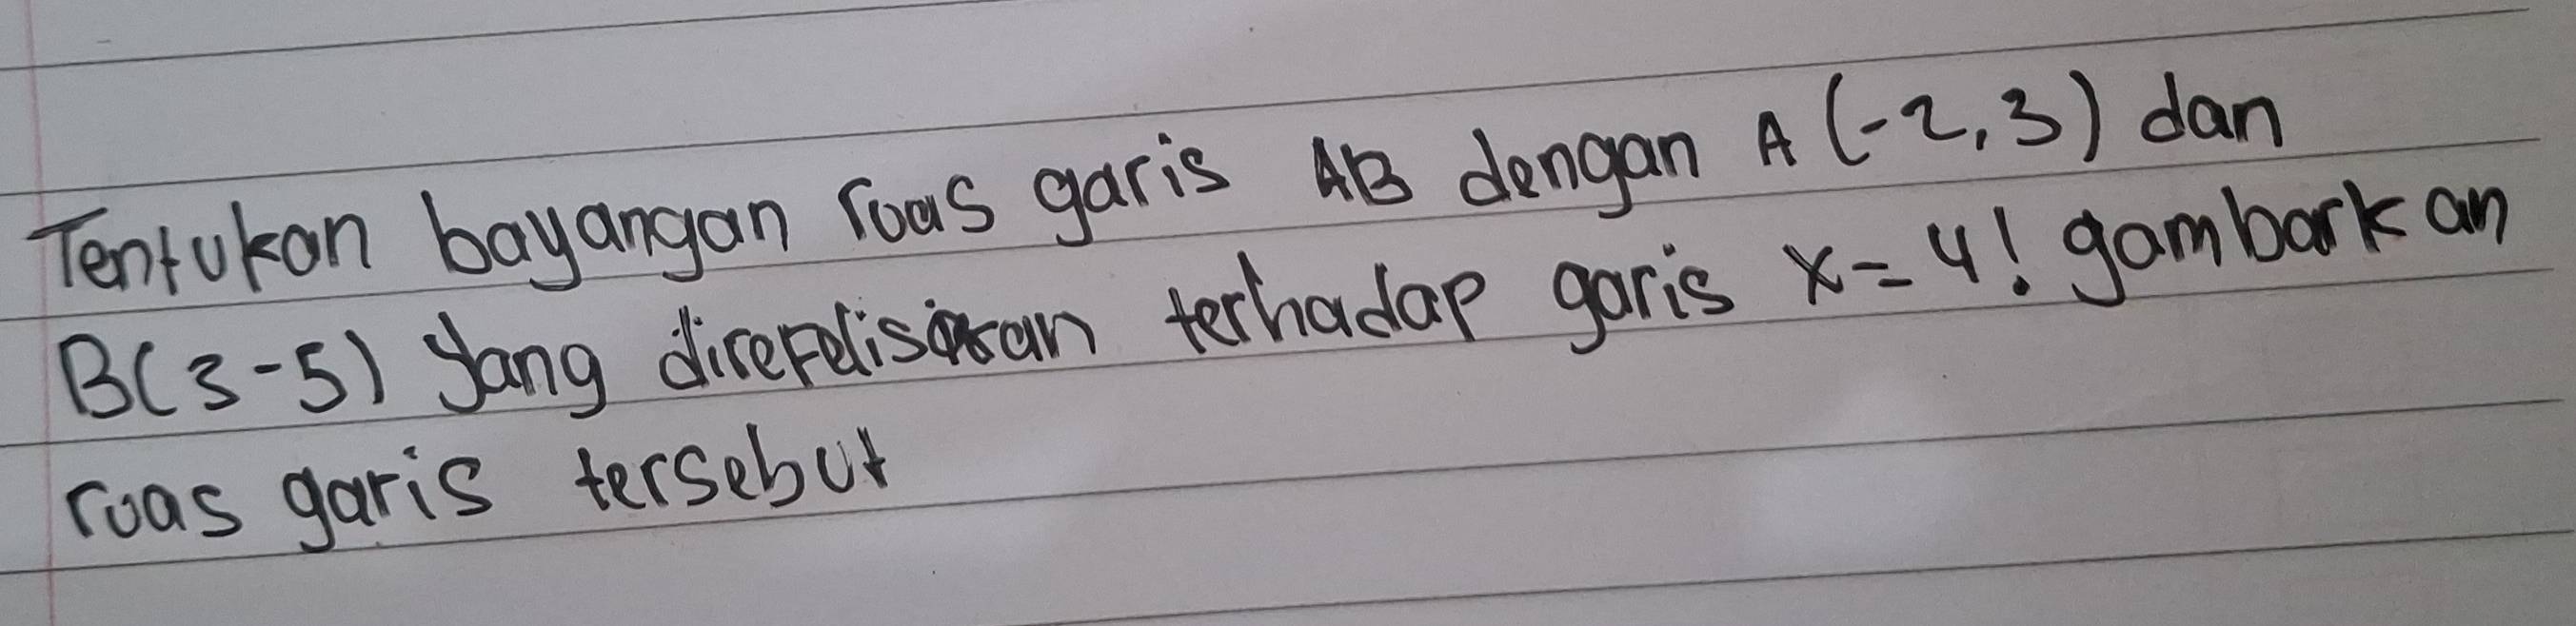 Tentukan bayangan ruas garis AB dengan A (-2,3) dan
B(3-5) yang direfelisikan terhadap garis x=4! gambarkan
ruas garis tersebut